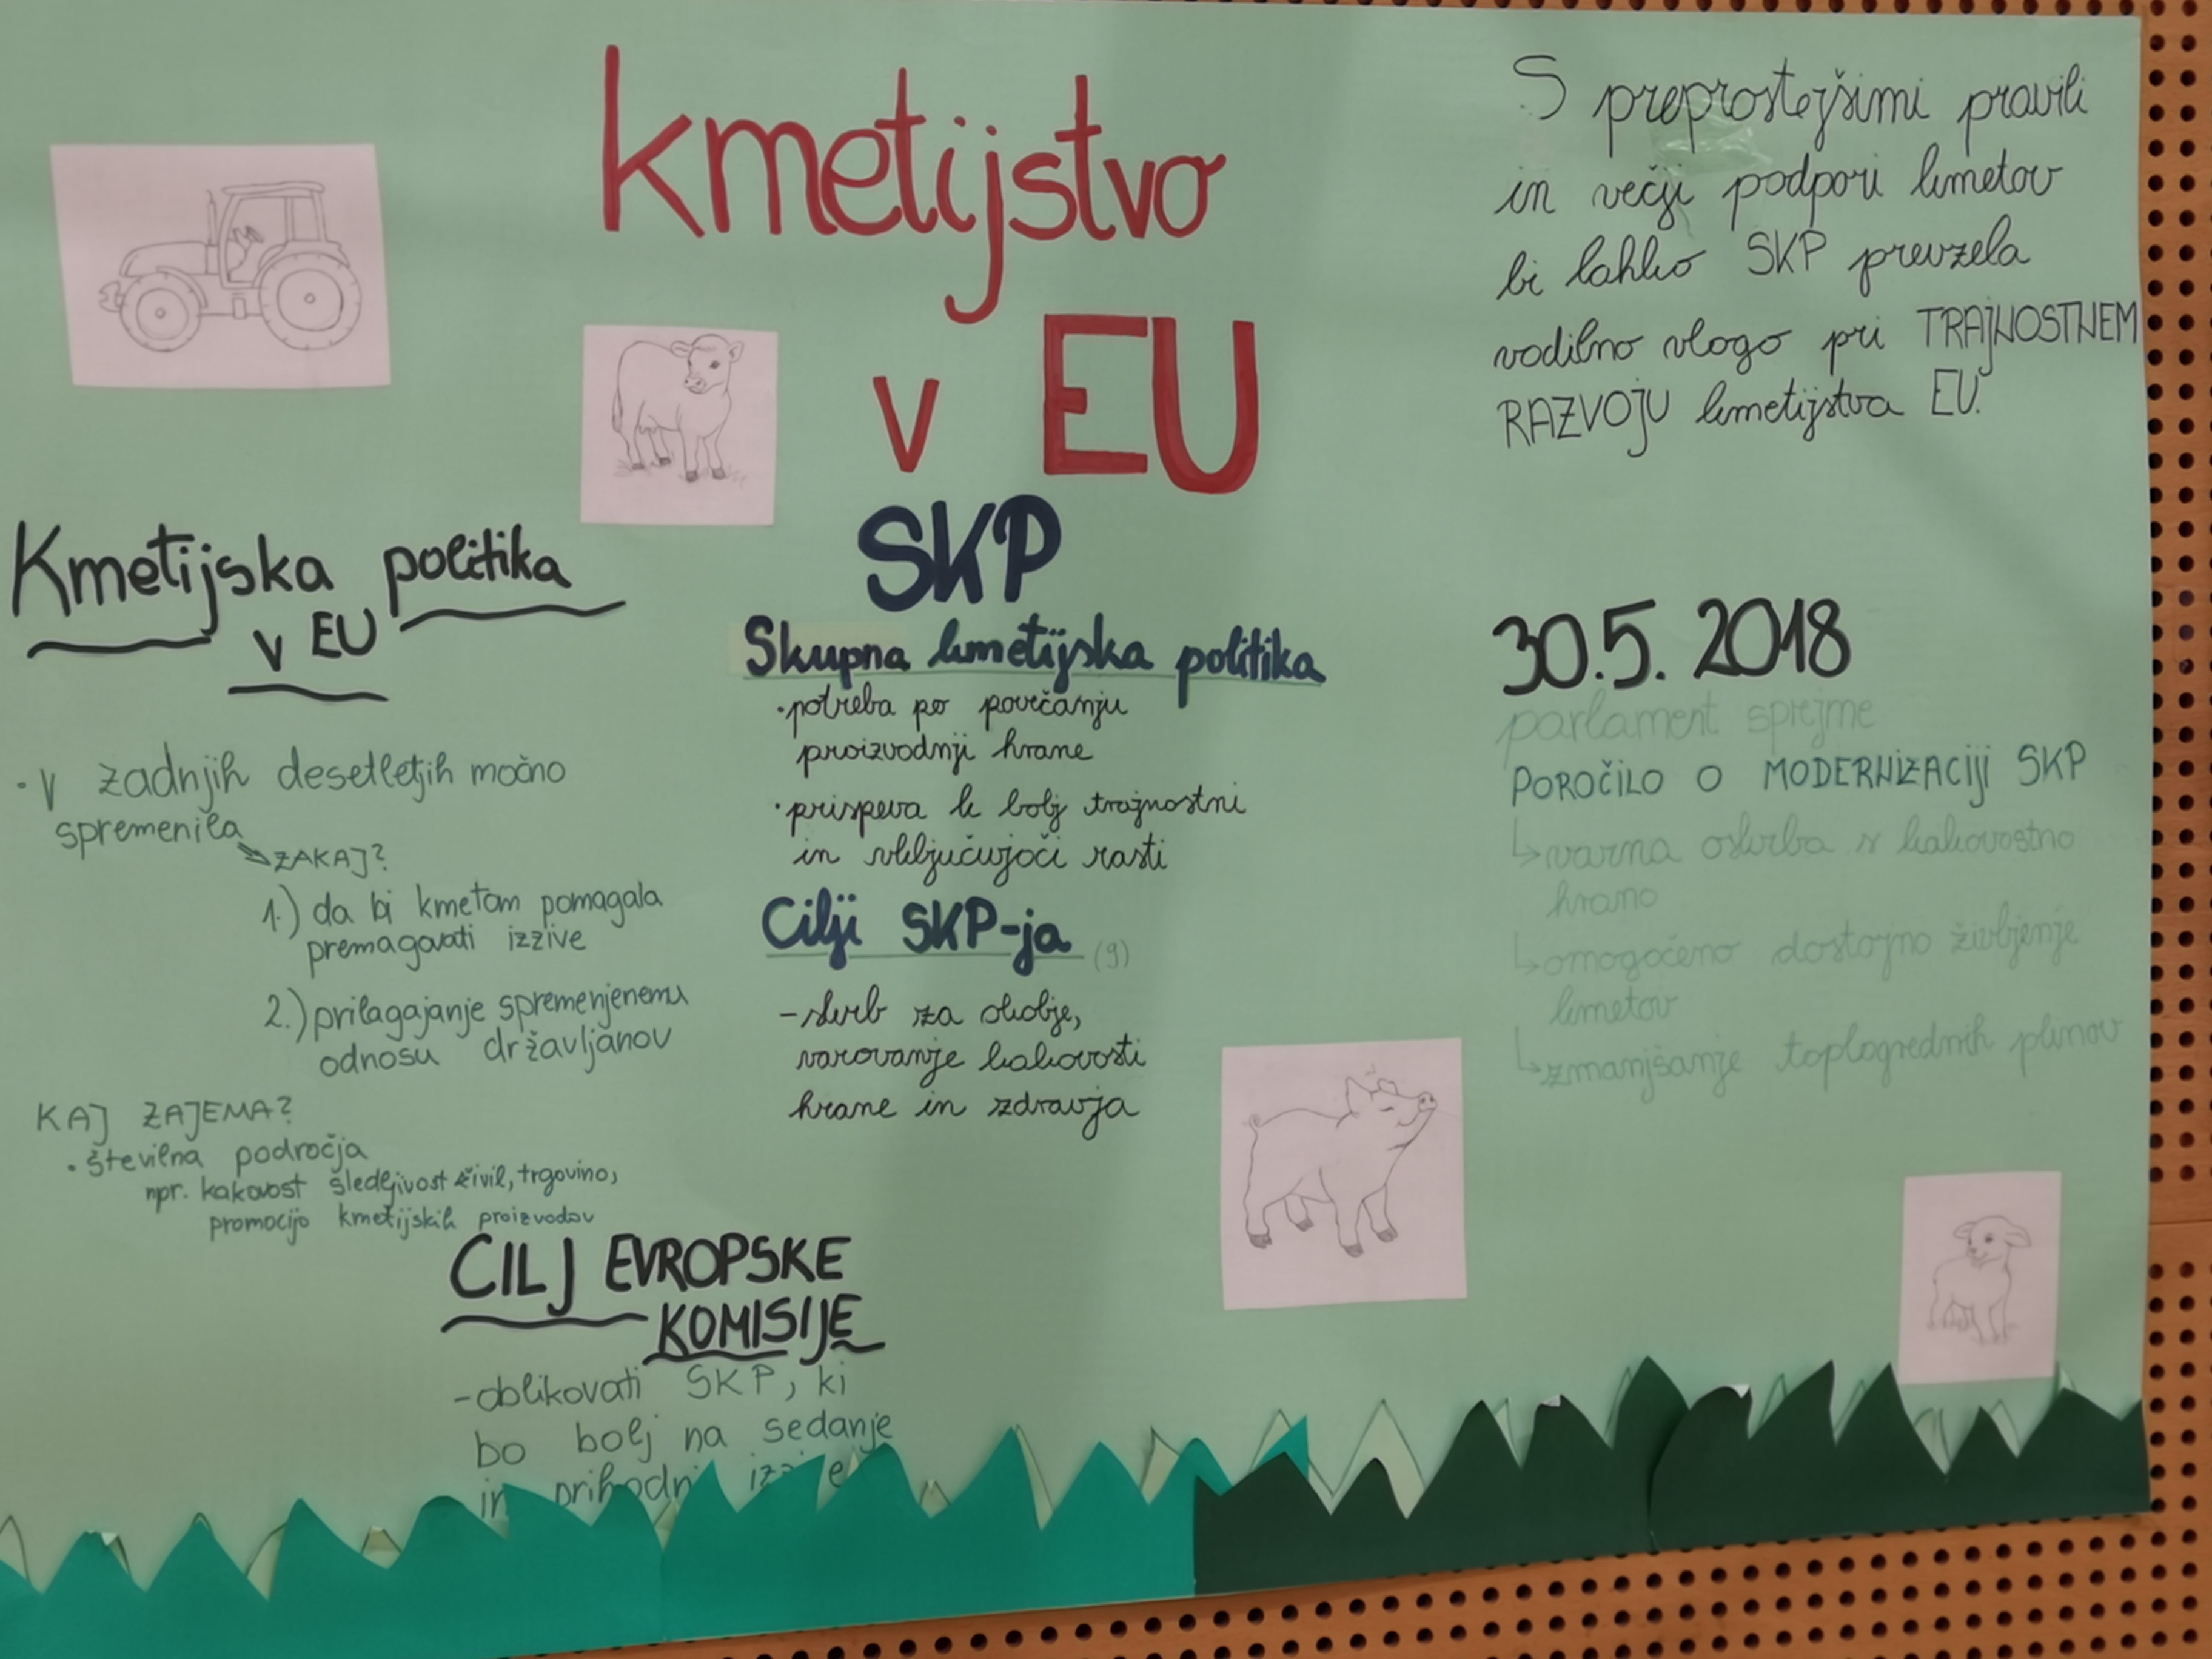 kmetijstvo
v EU
Kmetijska politika
v EU
• V zadnjih desetletjih močno
spremenila
ZAKAJ?
1.) da bi kmetom pomagala
premagovati izzive
2.) prilagajanje spremenjenemu
odnosu državljanov
KAJ ZAJEMA?
• številna področja
npr. kakovost sledljivost živil, trgovino,
promocijo kmetijskih proizvodov
CILJ EVROPSKE
KOMISIJE
- oblikovati SKP, ki
bo bolj na sedanje
in
SKP
Skupna kmetijska politika
• potreba po povečanju
proizvodnji hrane
• prispeva k bolj trajnostni
in vključujoči rasti
Cilji SKP-ja (9)
- skrb za okolje,
varovanje kakovosti
hrane in zdravja
S preprostejšimi pravili
in večji podpori kmetov
bi lahko SKP prevzela
vodilno vlogo pri TRAJNOSTNEM
RAZVOJU kmetijstva EU.
30.5. 2018
parlament sprejme
POROČILO O MODERNIZACIJI SKP
↳ varna oskrba s kakovostno
hrano
↳ omogočeno dostojno življenje
kmetov
↳ zmanjšanje toplogrednih plinov